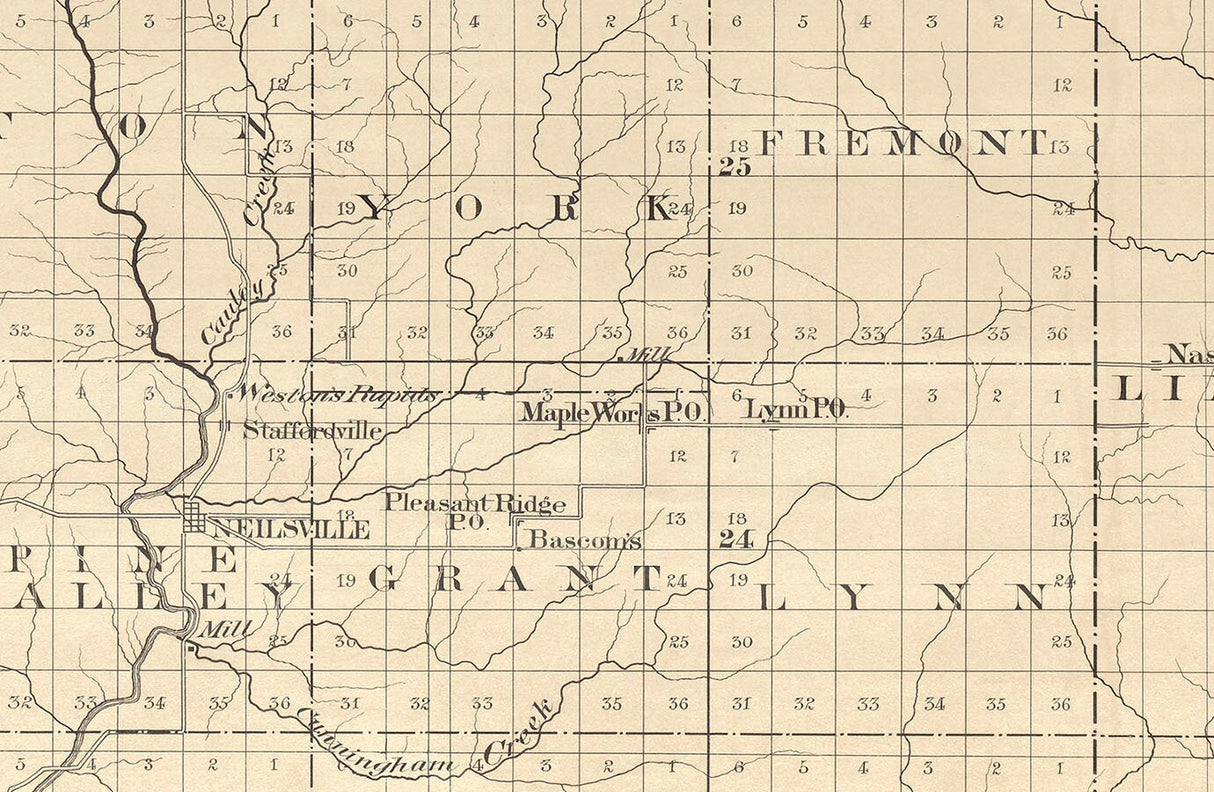 5 4 3 2 1 6 5 4 3 2 1 6 5 4 3 2 1
12 7 12 7 12
T O N
13 18 13 18 FREMONT 13
25
Creek
24 19 YORK 24 19 24
25 30 25 30 25
Cauley
32 33 34 36 31 32 33 34 35 36 31 32 33 34 35 36
Mill
Nas
5 4 3 Weston's Rapids 4 3 2 1 6 5 4 3 2 1 LI
Maple Works P.O. Lynn P.O.
Staffordville
12 7 12 7 12
Pleasant Ridge
P.O.
18 13 18 13
NEILSVILLE
Bascom's
24
PINE
24 19 GRANT 24 19 24
ALLEY LYNN
Mill
25 30 25 30 25
32 33 34 35 36 31 32 33 35 36 31 32 33 34 35 36
Cunningham Creek
5 4 3 2 1 6 4 3 2 1 6 5 4 3 2 1